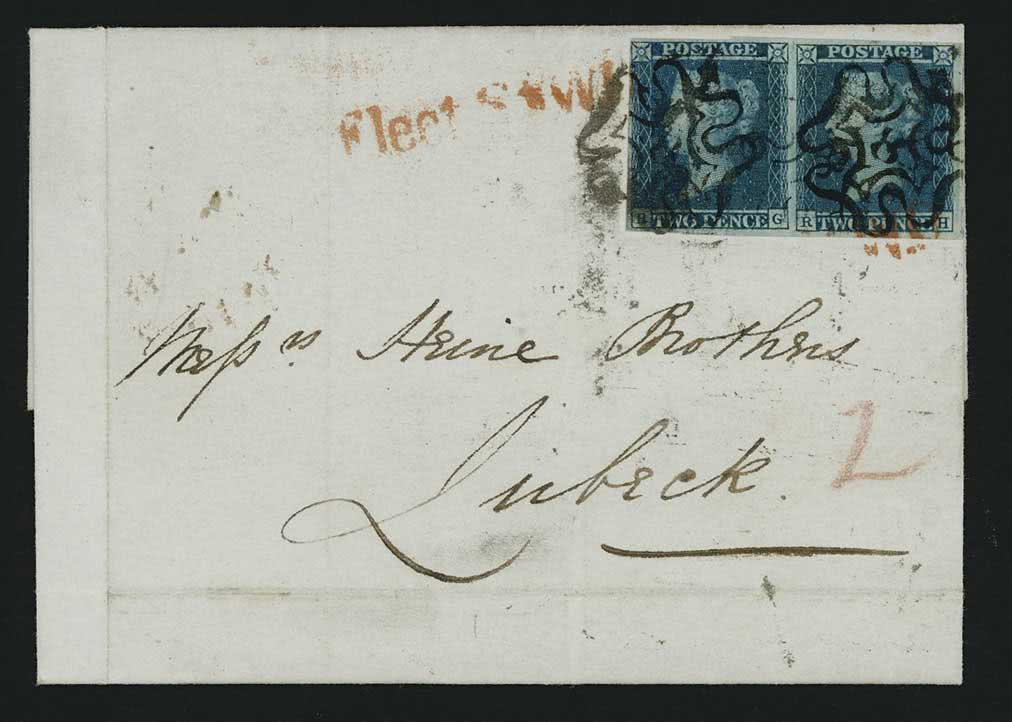 POSTAGE POSTAGE
Fleet St
G R H
TWO PENCE TWO PENCE
Messrs Heine Brothers
Lubeck.
L